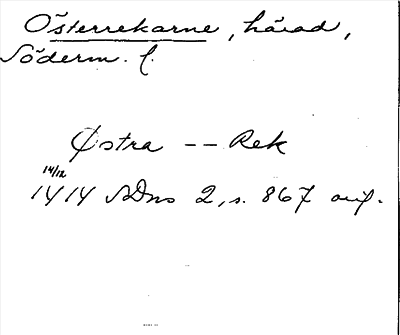 Österrekarne, härad,
Söderm. l.
Østra -- Rek
14/12
1414 SDns 2, s. 867 avs.